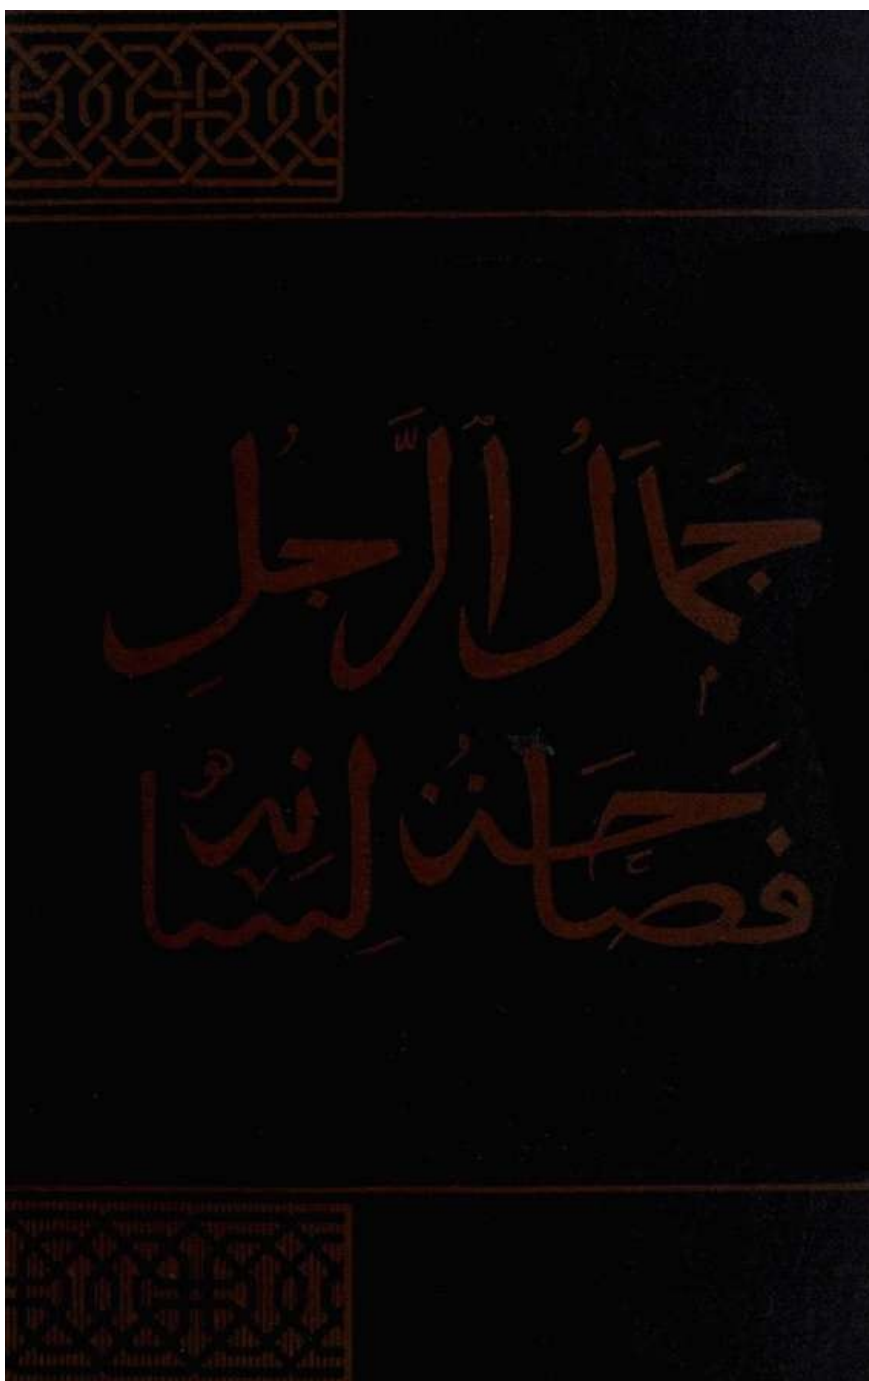 جَمَالُ الرَّجُلِ
فَصَاحَةُ لِسَانِهِ